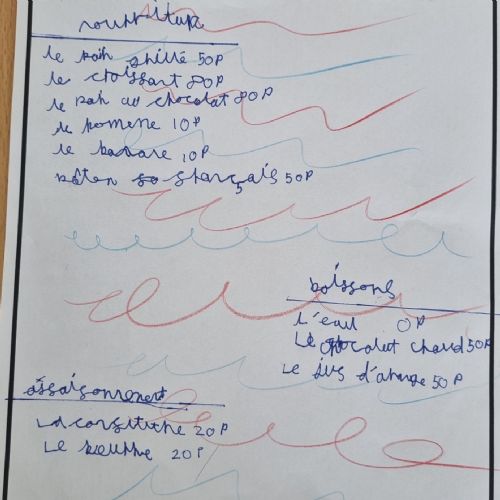 nourriture
le pain grillé 50P
le croissant 80P
le pain au chocolat 80P
le pomme 10P
le banane 10P
bâton français 50P
boissons
L'eau 0P
Le chocolat chaud 50P
Le jus d'orange 50P
assaisonnement
La confiture 20P
Le beurre 20P